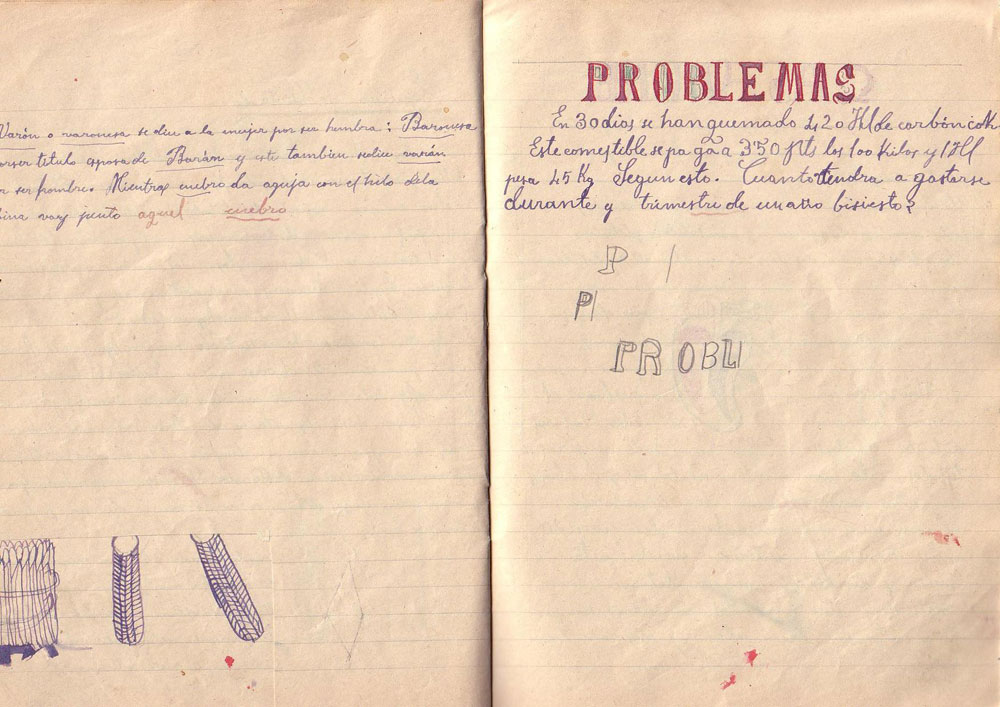 Varón o varonesa se dice a la mujer por ser hembra: Baronesa
por ser titulo esposa de Barón y este tambien se dice varón
por ser hombre. Mientras enebro da aguja con el hilo de la
voy junto aquel enebro
PROBLEMAS
En 30 dias se han quemado 4,20 Hl de carbón cok.
Este comestible se paga a 350 pts los 100 kilos y 1 Hl
pesa 45 Kg Segun esto. Cuanto tendra a gastarse
durante y trimestre de un año bisiesto?
P
P
PROBL